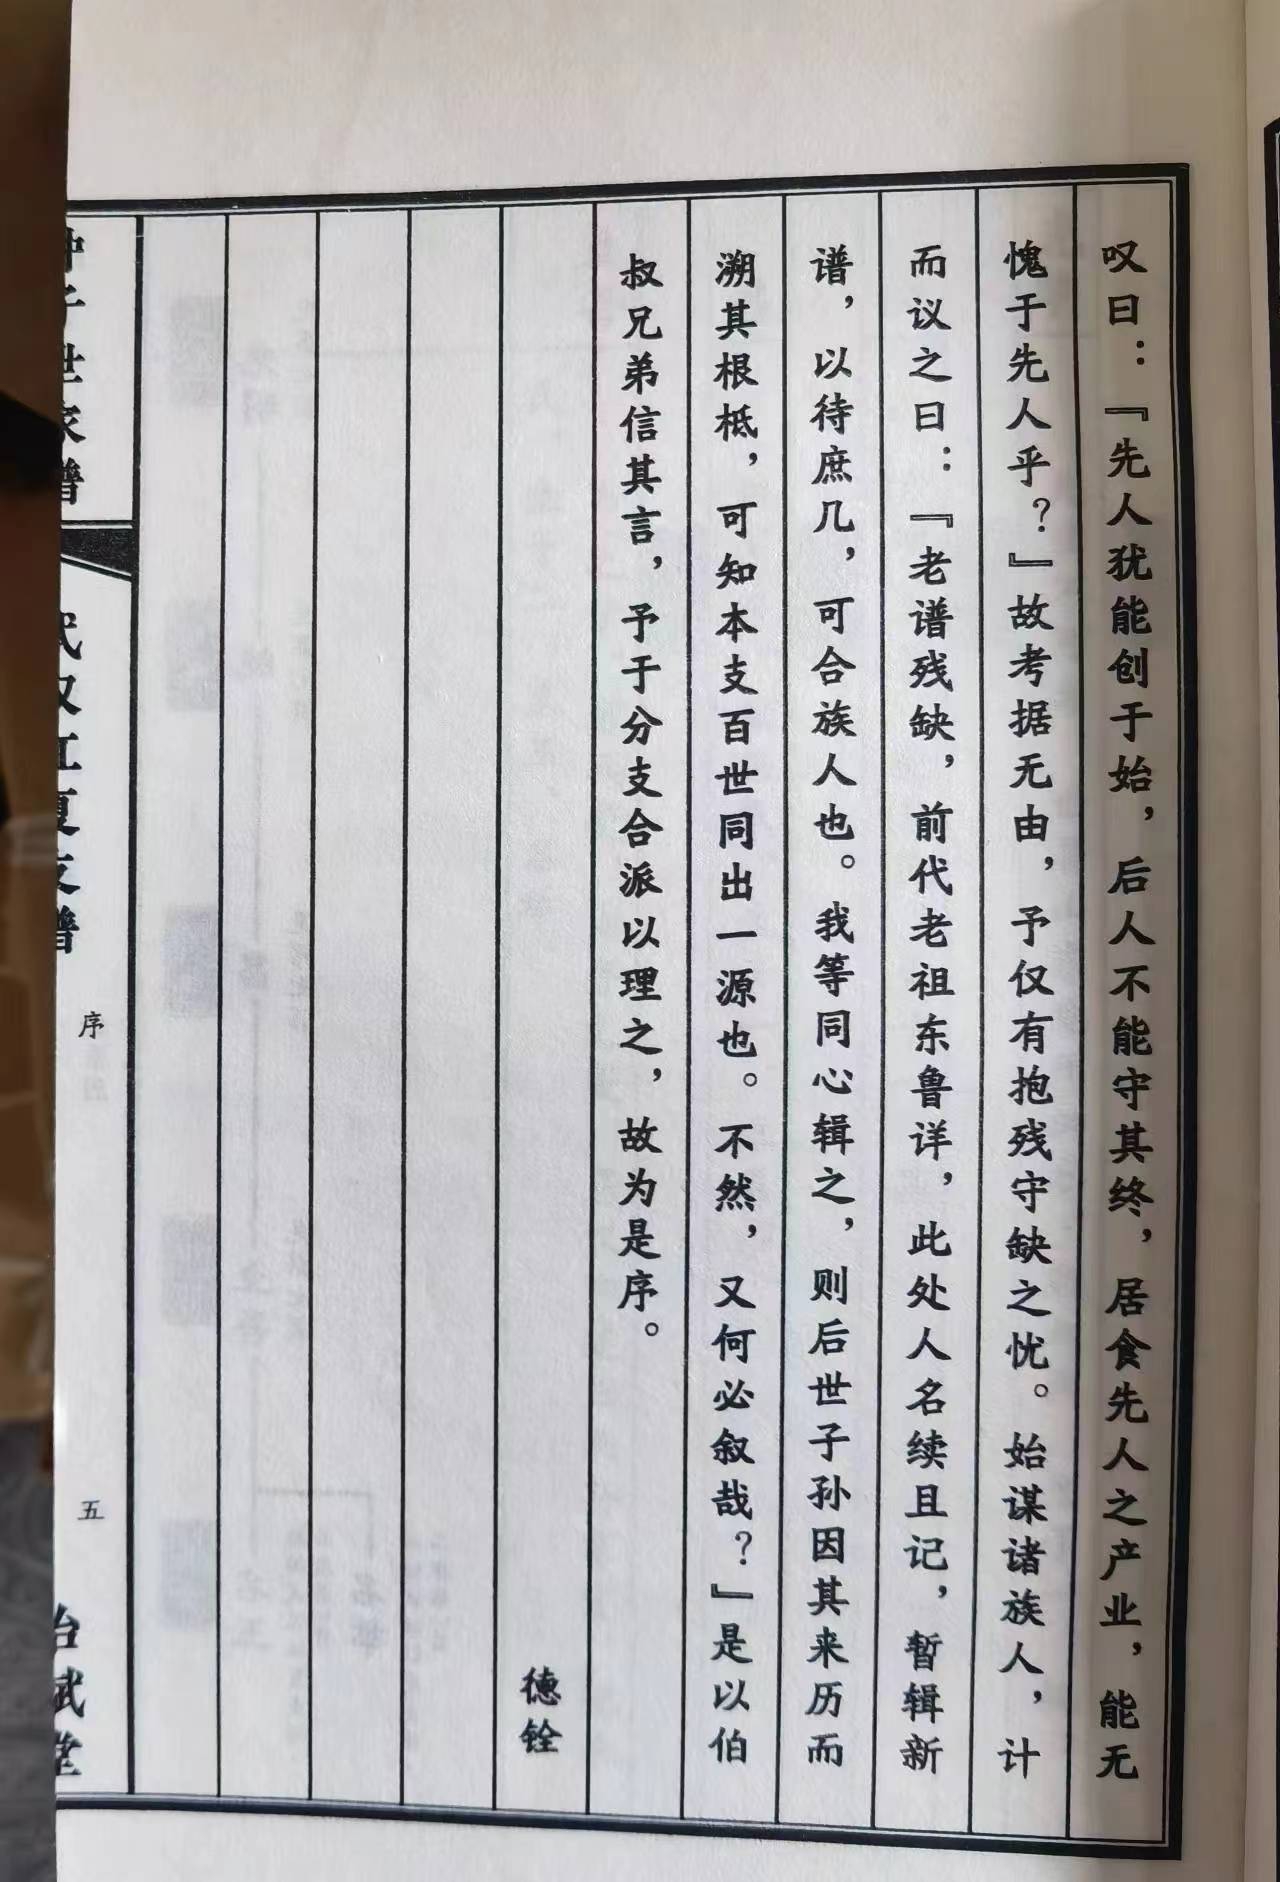 叹曰：『先人犹能创于始，后人不能守其终，居食先人之产业，能无
愧于先人乎？』故考据无由，予仅有抱残守缺之忧。始谋诸族人，计
而议之曰：『老谱残缺，前代老祖东鲁详，此处人名续且记，暂辑新
谱，以待庶几，可合族人也。我等同心辑之，则后世子孙因其来历而
溯其根柢，可知本支百世同出一源也。不然，又何必叙哉？』是以伯
叔兄弟信其言，予于分支合派以理之，故为是序。
德铨
世家谱
江夏支谱
序
五
堂